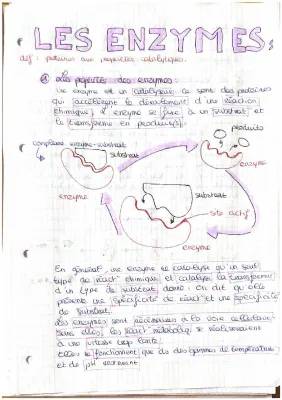 LES ENZYMES:
def: proteines aux proprietés catalytiques.
① Les propriétés des enzymes:
Une enzyme est un catalyseur ce sont des protéines
qui accélèrent le déroulement d'une réaction
chimique, l'enzyme se fixe à un substrat et
le transforme en produit(s).
produits
complexe enzyme-substrat
substrat
enzyme
substrat
enzyme
site actif
enzyme
En général, une enzyme ne catalyse qu'un seul
type de réact° chimique et catalyse la transforma°
d'un type de substrat donné. On dit qu'elle
présente une spécificité de réact° et une spécificité
de substrat.
Les enzymes sont nécessaires à la vie cellulaire
Sans elles, les réact° métaboliq. se réaliseraient
à une vitesse trop lente.
Elles ne fonctionnent que ds des gammes de température
et de pH